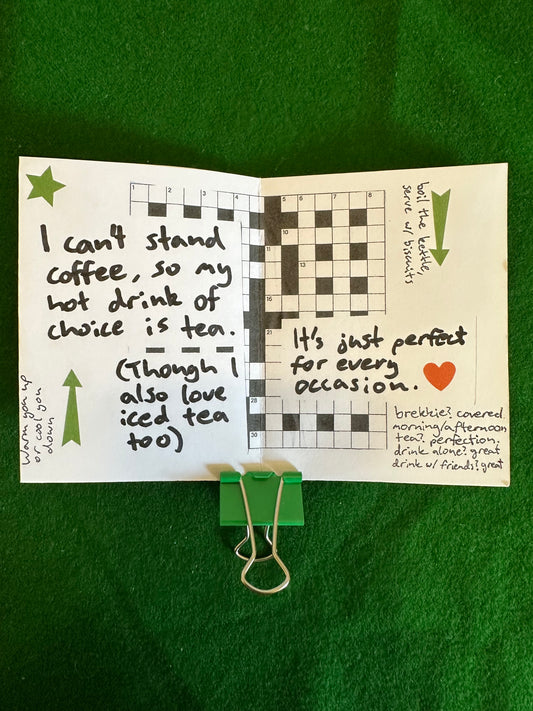 1 2 3 4
I can't stand
coffee, so my
hot drink of
choice is tea.
(Though I
also love
iced tea
too)
warm you up
or cool you
down
5 6 7 8
10
11
13
16
21
28
30
boil the kettle,
serve w/ biscuits
It's just perfect
for every
occasion.
brekkie? covered.
morning/afternoon
tea? perfection.
drink alone? great
drink w/ friends? great